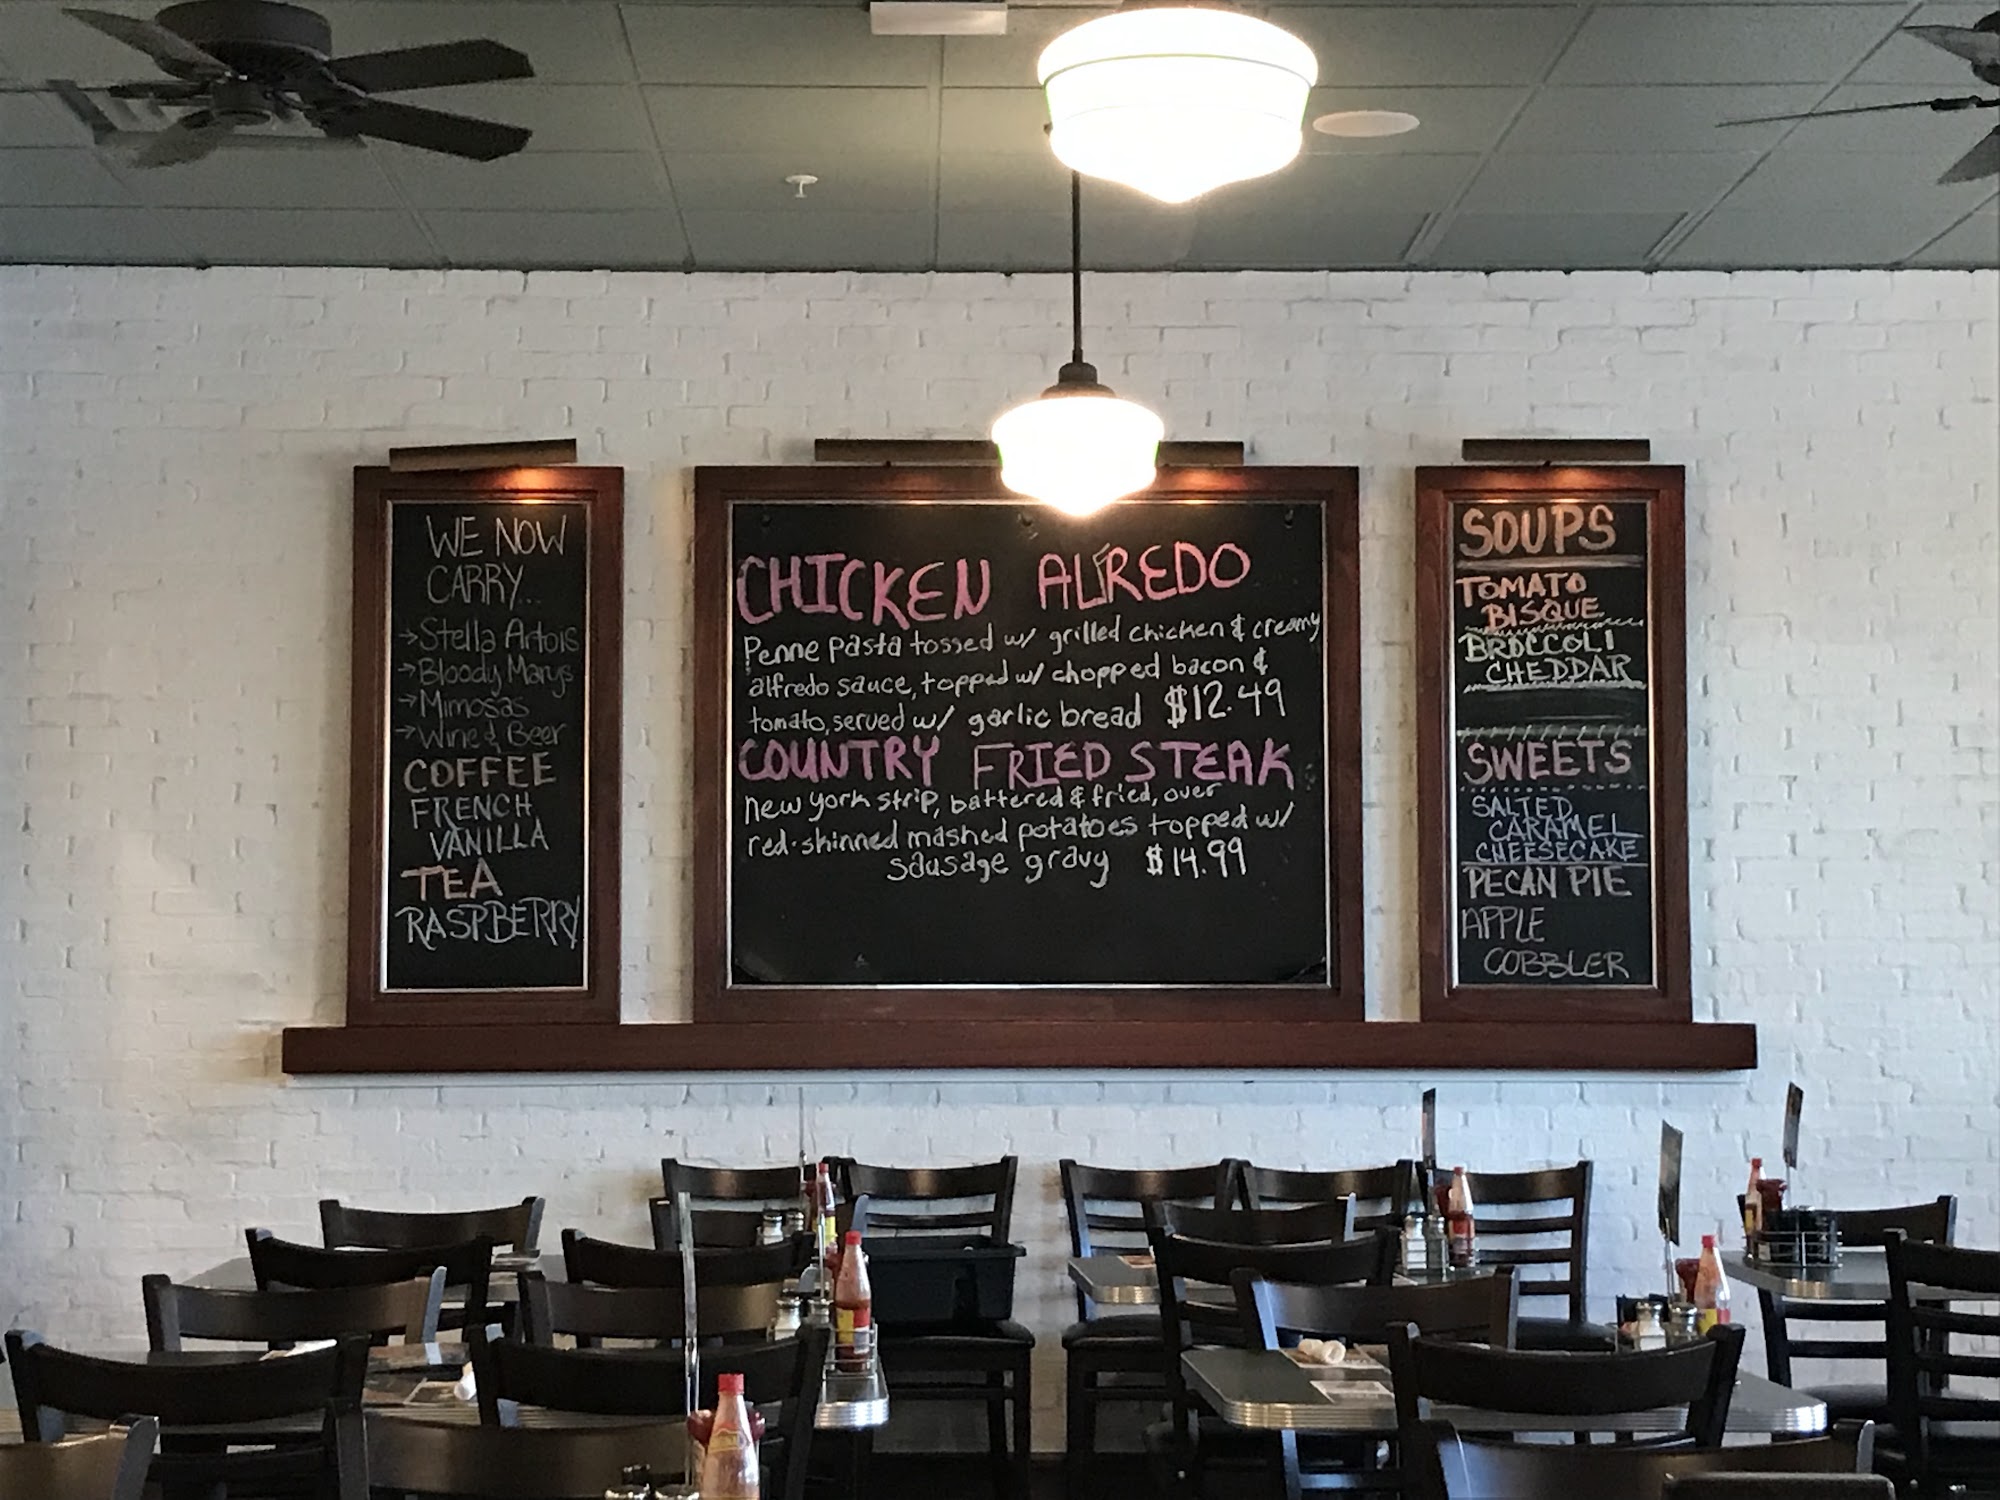 WE NOW
CARRY...
→Stella Artois
→Bloody Marys
→Mimosas
→Wine & Beer
COFFEE
FRENCH
VANILLA
TEA
RASPBERRY
CHICKEN ALFREDO
Penne pasta tossed w/ grilled chicken & creamy
alfredo sauce, topped w/ chopped bacon &
tomato, served w/ garlic bread $12.49
COUNTRY FRIED STEAK
New york strip, battered & fried, over
red-skinned mashed potatoes topped w/
sausage gravy $14.99
SOUPS
TOMATO
BISQUE
BROCCOLI
CHEDDAR
SWEETS
SALTED
CARAMEL
CHEESECAKE
PECAN PIE
APPLE
COBBLER